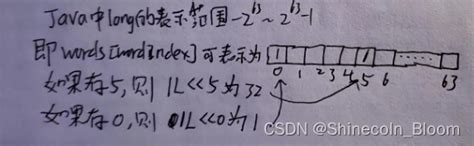 Java中long的表示范围-2^63~2^63-1
即words[wordIndex]可表示为
0 1 2 3 4 5 6 63
如果存5,则 1L<<5为32
如果存0,则 1L<<0为1
CSDN @Shinecoln_Bloom